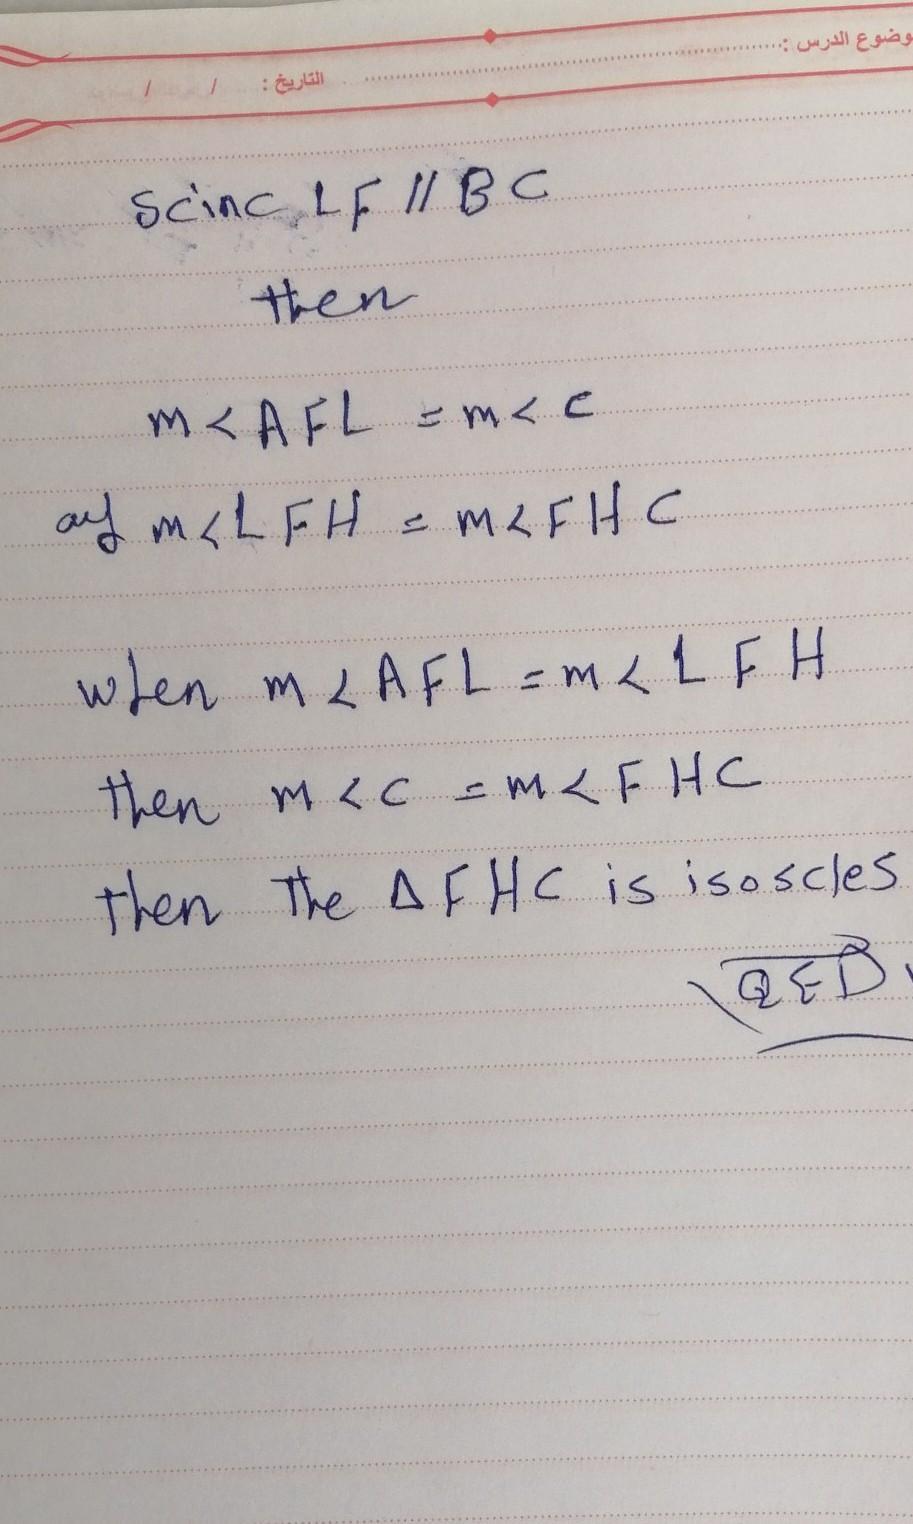 موضوع الدرس :
التاريخ : / /
Scinc LF // BC
then
m < AFL = m < c
m < LFH = m < FHC
when m < AFL = m < LFH
then m < c = m < FHC
then The Δ FHC is isoscles
QED